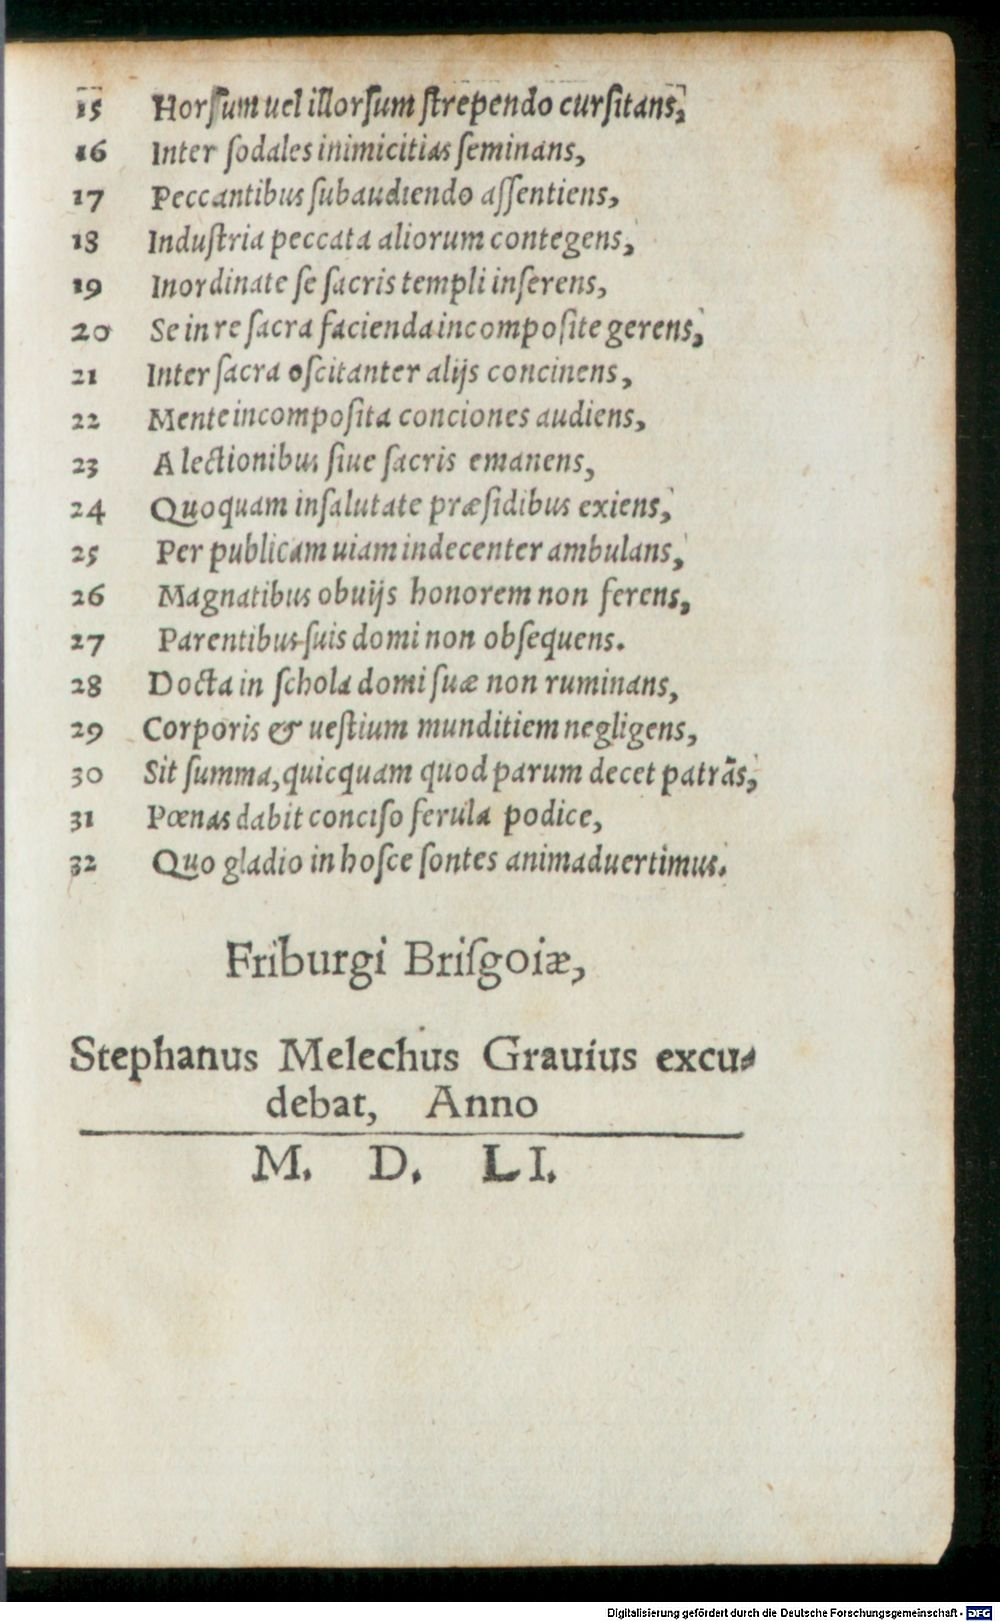 15 Horſum uel illorſum ſtrependo curſitans,
16 Inter ſodales inimicitias ſeminans,
17 Peccantibus ſubaudiendo aſſentiens,
18 Induſtria peccata aliorum contegens,
19 Inordinate ſe ſacris templi inſerens,
20 Se in re ſacra facienda incompoſite gerens,
21 Inter ſacra oſcitanter alijs concinens,
22 Mente incompoſita conciones audiens,
23 A lectionibus ſiue ſacris emanens,
24 Quoquam inſalutate præſidibus exiens,
25 Per publicam uiam indecenter ambulans,
26 Magnatibus obuijs honorem non ferens,
27 Parentibus ſuis domi non obſequens.
28 Docta in ſchola domi ſuæ non ruminans,
29 Corporis & ueſtium munditiem negligens,
30 Sit ſumma, quicquam quod parum decet patrãs,
31 Pœnas dabit conciſo ferula podice,
32 Quo gladio in hoſce ſontes animaduertimus.
Friburgi Briſgoiæ,
Stephanus Melechus Grauius excu-
debat, Anno
M. D. LI.
Digitalisierung gefördert durch die Deutsche Forschungsgemeinschaft - DFG